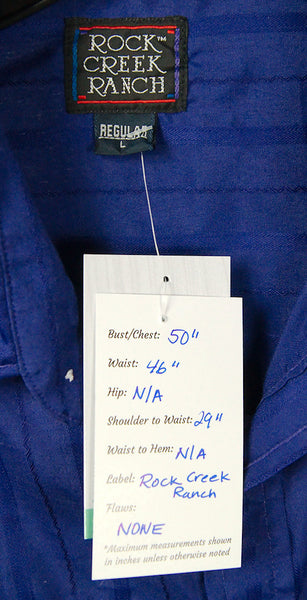 ROCK™
CREEK
RANCH
REGULAR
L
Bust/Chest: 50"
Waist: 46"
Hip: N/A
Shoulder to Waist: 29"
Waist to Hem: N/A
Label: Rock Creek
Ranch
Flaws:
NONE
*Maximum measurements shown
in inches unless otherwise noted